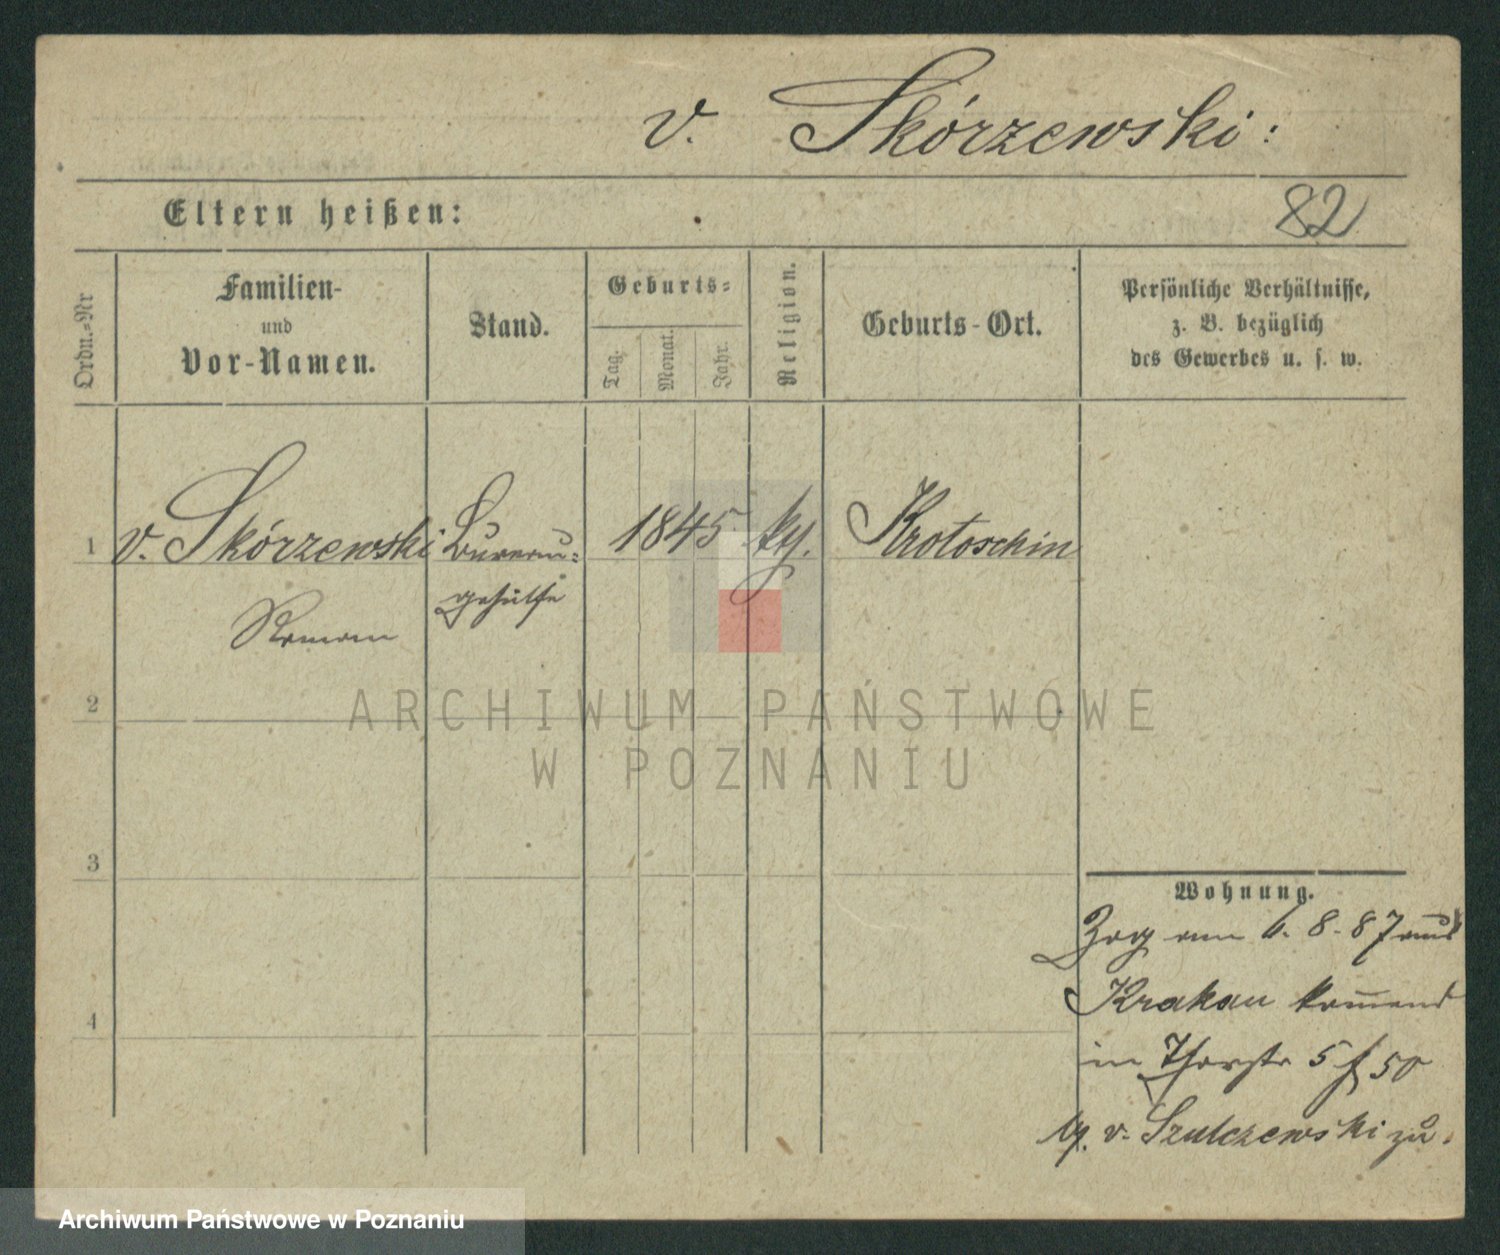 v. Skórzewski:
Eltern heißen:
82
Ordn.=Nr
Familien-
und
Vor-Namen.
Stand.
Geburts=
Tag.
Monat.
Jahr.
Religion.
Geburts-Ort.
Persönliche Verhältnisse,
z. B. bezüglich
des Gewerbes u. s. w.
1 v. Skórzewski Bureau= 1845 kg. Krotoschin
Roman gehülfe
2
ARCHIWUM PAŃSTWOWE
W POZNANIU
3
Wohnung.
Zog am 6. 8. 87 aus
Krakau kom̅end
4
in Thorstr 5 f 50
v. Szulczewski zu.
Archiwum Państwowe w Poznaniu